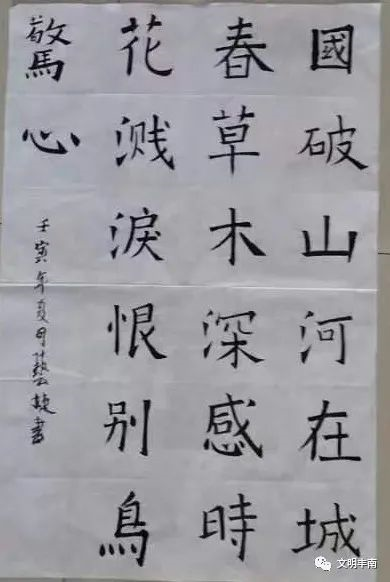 國破山河在城
春草木深感時
花溅淚恨别鳥
驚心
壬寅年夏月
書
文明丰南